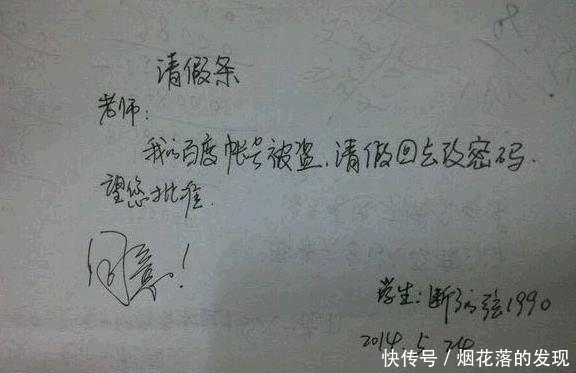 请假条
老师:
我的百度帐号被盗,请假回去改密码.
望您批准.
同意!
学生:断的弦1990
2014.5.24
快传号 / 烟花落的发现